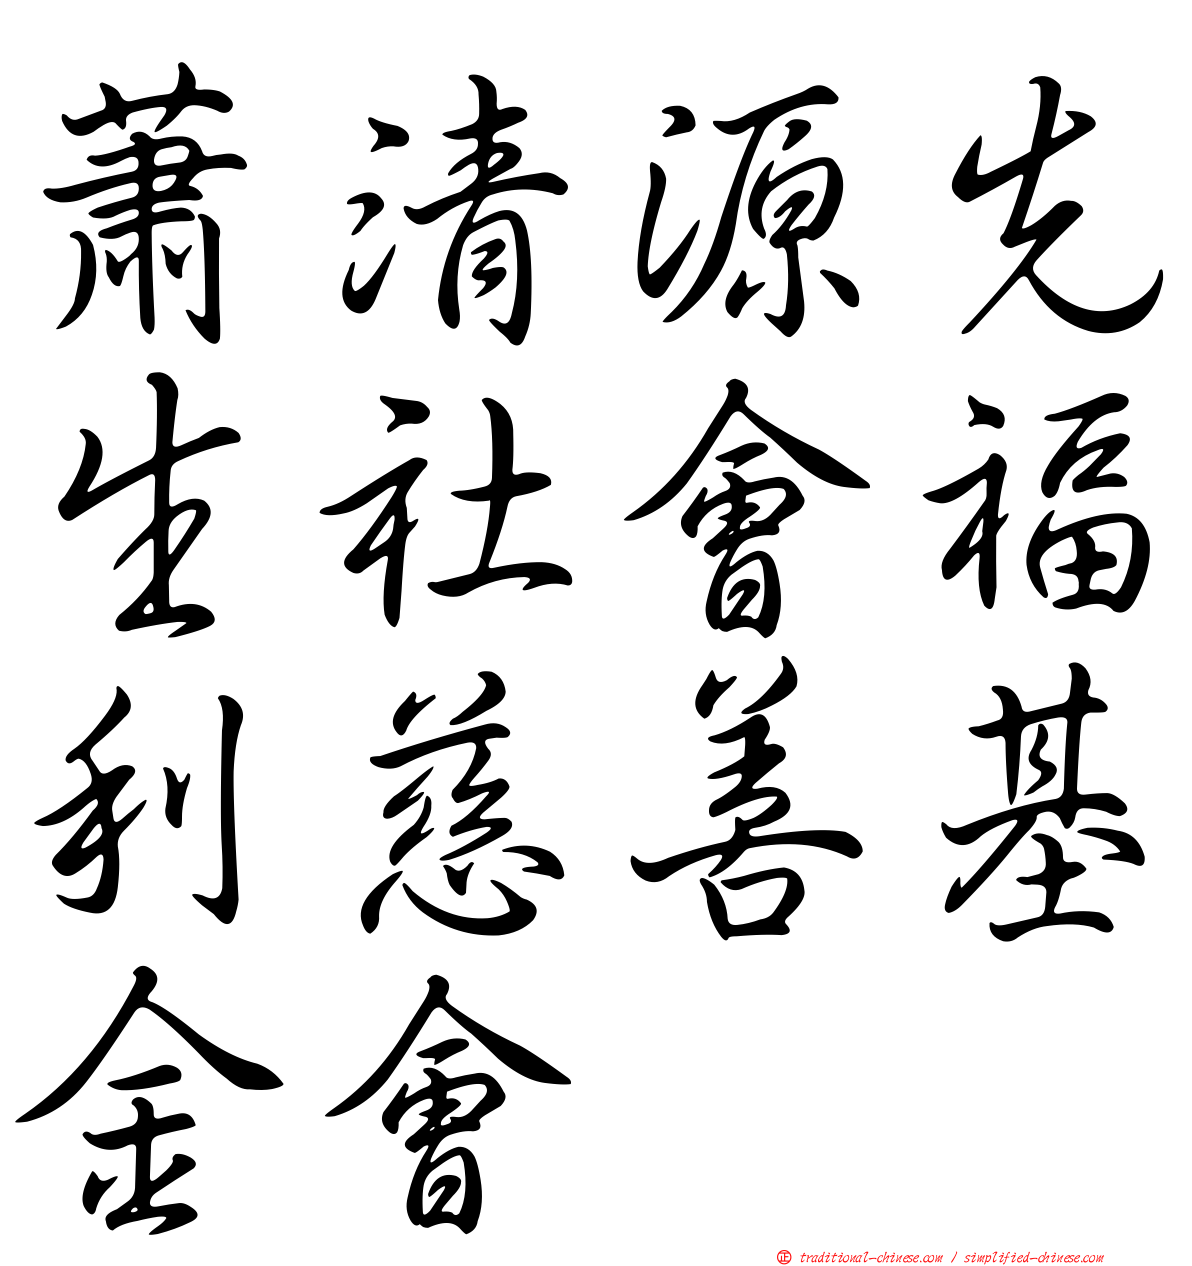 蕭清源先
生社會福
利慈善基
金會
正 traditional-chinese.com / simplified-chinese.com